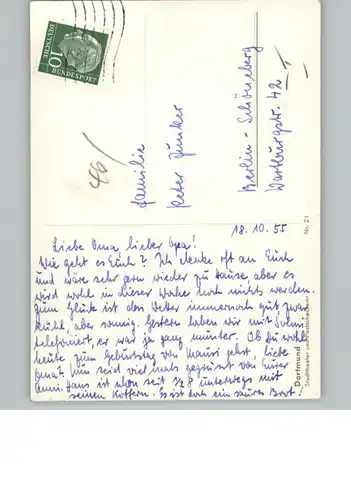 DEUTSCHE BUNDESPOST
10
46/
Familie
Peter Junker
Berlin-Schöneberg
Wartburgstr. 42
I
18.10.55
Liebe Oma, lieber Opa!
Wie geht es Euch? Ich denke oft an Euch
und wäre sehr gern wieder zu Hause, aber es
wird wohl in dieser Woche noch nichts werden.
Zum Glück ist das Wetter immer noch gut, zwar
kühl, aber sonnig. Gestern haben wir mit
telefoniert, er war ja ganz munter. Ob du wohl
heute zum Geburtstag von Mausi gehst, liebe
Oma? Nun seid vielmals gegrüsst von Eurer
Anni. Hans ist schon seit 1/2 8 unterwegs mit
seinen Koffern. Es ist doch ein saures Brot!
Nr. 21
Dortmund
Stadttheater und